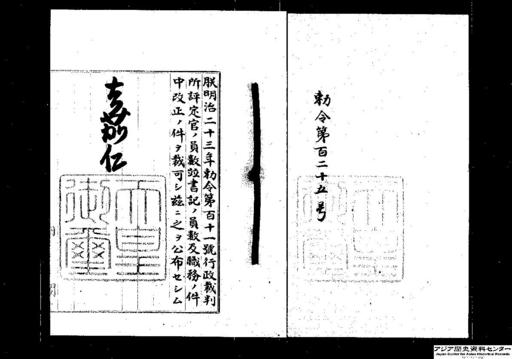 勅令第百二十五号
朕明治二十三年勅令第百十一號行政裁判
所評定官ノ員數竝書記ノ員數及職務ノ件
中改正ノ件ヲ裁可シ茲ニ之ヲ公布セシム
嘉仁
天皇
御璽
アジア歴史資料センター
Japan Center for Asian Historical Records